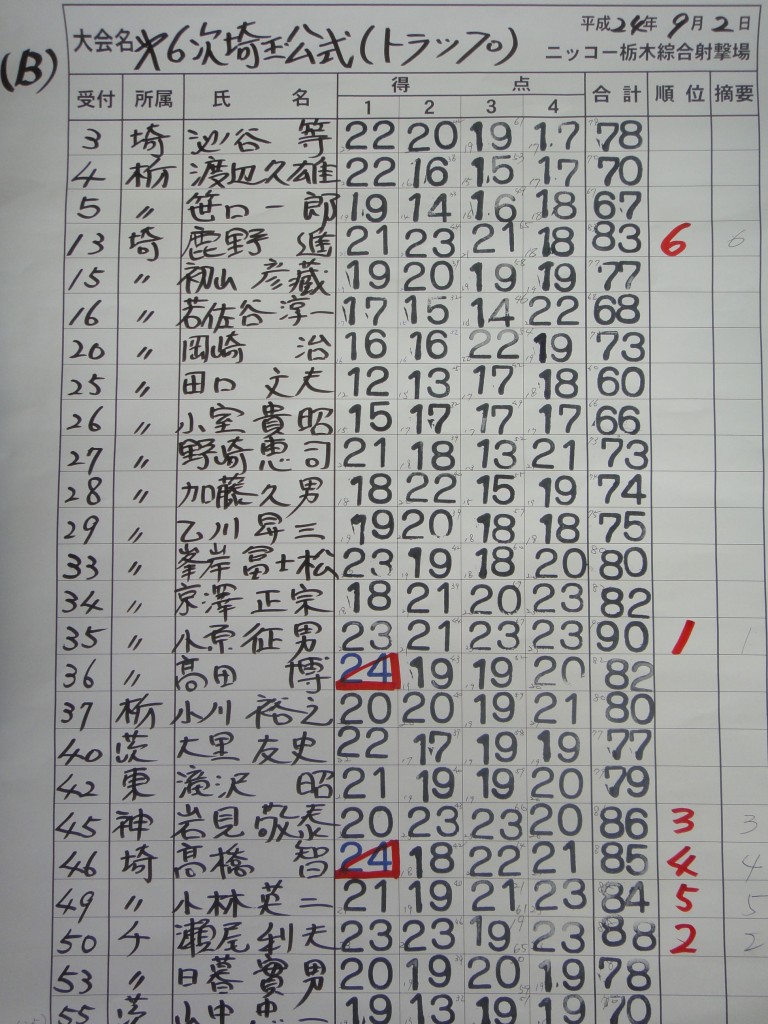 平成24年9月2日
大会名 第6次埼玉公式(トラップ) ニッコー栃木綜合射撃場
(B)
受付 所属 氏名 得点 合計 順位 摘要
1 2 3 4
3 埼 谷 等 22 20 19 17 78
4 栃 渡辺久雄 22 16 15 17 70
5 〃 笹口一郎 19 14 16 18 67
13 埼 鹿野 進 21 23 21 18 83 6 6
15 〃 初山 彦蔵 19 20 19 19 77
16 〃 若佐谷淳一 17 15 14 22 68
20 〃 岡崎 治 16 16 22 19 73
25 〃 田口 文夫 12 13 17 18 60
26 〃 小室 貴昭 15 17 17 17 66
27 〃 野崎恵司 21 18 13 21 73
28 〃 加藤久男 18 22 15 19 74
29 〃 乙川 昇三 19 20 18 18 75
33 〃 峯岸冨士松 23 19 18 20 80
34 〃 京澤 正宗 18 21 20 23 82
35 〃 小原 征男 23 21 23 23 90 1 1
36 〃 高田 博 24 19 19 20 82
37 栃 小川 裕之 20 20 19 21 80
40 茨 大里 友史 22 17 19 19 77
42 東 滝沢 昭 21 19 19 20 79
45 神 岩見 敬泰 20 23 23 20 86 3 3
46 埼 高橋 智 24 18 22 21 85 4 4
49 〃 小林 英二 21 19 21 23 84 5 5
50 千 瀬尾 利夫 23 23 19 23 88 2 2
53 〃 日暮 實男 20 19 20 19 78
55 茨 山中 一 19 13 19 19 70